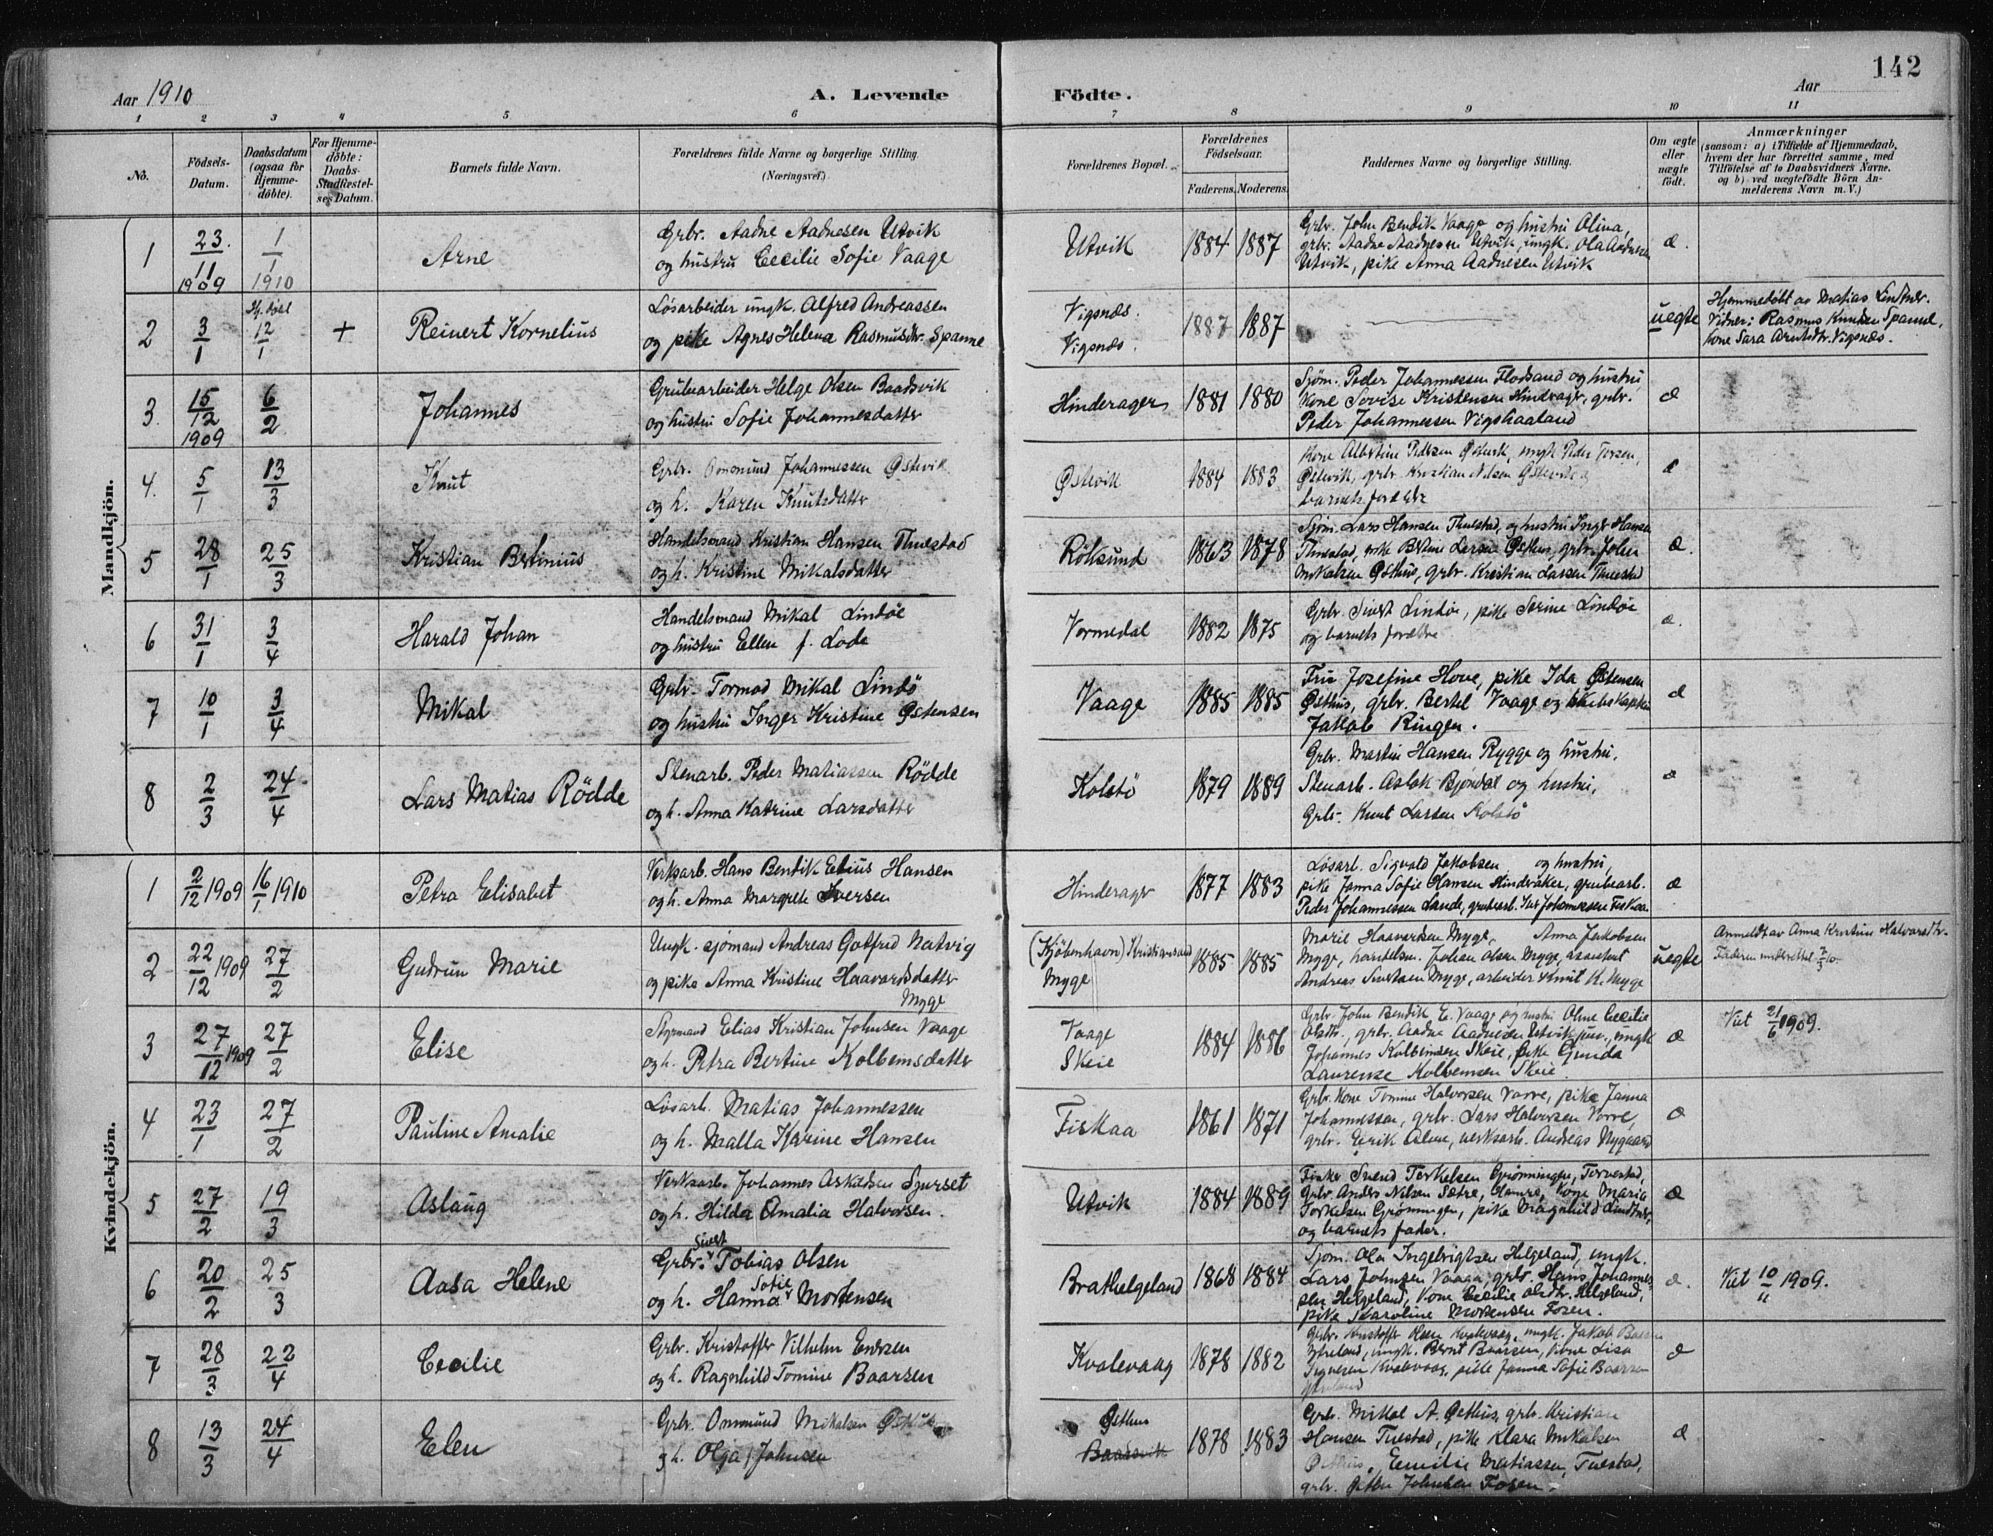 Aar 1910
A. Levende
Födte.
Aar
142
1 2 3 4 5 6 7 8 9 10 11
No.
Födsels-
Datum.
Daabsdatum
(ogsaa för
Hjemme-
döbte).
For Hjemme-
döbte:
Daabs-
Stadfæstel-
ses Datum.
Barnets fulde Navn.
Forældrenes fulde Navne og borgerlige Stilling.
(Næringsvei.)
Forældrenes Bopæl.
Forældrenes
Födselsaar.
Faderens. Moderens.
Faddernes Navne og borgerlige Stilling.
Om ægte
eller
uægte
födt.
Anmærkninger
(saasom: a) i Tilfælde af Hjemmedaab,
hvem der har forrettet samme, med
Tilföielse af to Daabsvidners Navne,
og b) ved uægtefödte Börn An-
melderens Navn m. V.)
Mandkjön.
1
23. 11 1909
1 1 1910
Arne
Grbr. Aadne Aadnesen Utvik
og hustru Cecilie Sofie Vaage
Utvik
1884 1887
Grbr. John Bendik Vaage og hustru Olina,
grbr. Aadne Aadnesen Utvik, ungk. Ola Aadnesen
Utvik, pike Anna Aadnesen Utvik
æ.
2
3 1
Hj. döbt
12 1
+
Reinert Kornelius
Løsarbeider ungk. Alfred Andreassen
og pike Agnes Helena Rasmusdtr. Spanne
Vigsnæs.
Vigsnæs.
1887 1887
uegte
Hjemmedøbt av Matias Lindtner.
Vidner: Rasmus Knudsen Spanne,
kone Sara Arntsdtr. Vigsnæs.
3.
15 12 1909
6 2
Johannes
Grubearbeider Helge Olsen Baadsvik
og hustru Sofie Johannesdatter
Hinderager
1881 1880
Sjøm. Peder Johannessen Flodsand og hustru
Kone Lovise Kristensen Hindrager, grbr.
Peder Johannessen Vigshaaland
æ
4.
5 1
13 3
Knut
Grbr. Johannessen Østevik
og h. Karen Knutsdatter
Østevik
1884 1883
Kone Albertine Pedersen Østevik, ungk Peder
Østevik, grbr Kristian Nilsen Østevik og
barnets forældre
æ
5
28 1
25 3
Kristian Bertinius
Handelsmand Kristian Hansen Thuestad
og h. Kristine Mikalsdatter
Röksund
1863 1878
Sjøm. Lars Hansen Thuestad, og hustru Inger Hansen
Thuestad, pike Bertine Larsen Østhus, grbr. John
Mikalsen Østhus, grbr. Kristian Larsen Thuestad
æ.
6
31 1
3 4
Harald Johan
Handelsmand Mikal Lindöe
og hustru Ellen f. Lode
Vormedal
1882 1875
Grbr. Sivert Lindöe, pike Serine Lindöe
og barnets forældre
æ.
7
10 1
3 4
Mikal
Grbr. Tormod Mikal Lindö
og hustru Inger Kristine Østensen
Vaage
1885 1885
Fru Josefine Hove, pike Ida Østensen
Østhus, grbr. Bertel Vaage og skibskaptein
Jakob Ringen.
æ
8
2 3
24 4
Lars Matias Rödde
Stenarb. Peder Matiassen Rödde
og h. Anna Katrine Larsdatter
Kolstö
1879 1889
Grbr. Martin Hansen Rygge og hustru,
Stenarb. Aslak Bjöndal og hustru,
Grbr. Knut Larsen Kolstö
æ
Kvindekjön.
1
2 12 1909
16 1 1910
Petra Elisabet
Verksarb. Hans Bendik Elius Hansen
og h. Anna Margrete Iversen
Hinderager
1877 1883
Løsarb. Sigvald Jakobsen og hustru,
pike Janna Sofie Hansen Hinderaker, grubearb.
Peder Johannessen Lande, grubearb. Johannessen Fiskaa
æ
2
22 12 1909
27 2
Gudrun Marie
Ungk. sjömand Andreas Gotfred Natvig
og pike Anna Kristine Haavardsdatter
Myge
(Kjöbenhavn) Kristiansand
Myge
1885 1885
Marie Haavardsen Myge, Anna Jakobsen
Myge, handelsm. Johan Olsen Myge, assistent
Andreas Myge, arbeider Knut K. Myge
uegte
Anmeldt av Anna Kristine Halvarsdtr.
Faderen underrettet 7/3 10.
3
27 12 1909
27 2
Elise
Styrmand Elias Kristian Johnsen Vaage
og h. Petra Bertine Kolbensdatter
Vaage
Skeie
1884 1886
Grbr. John Bendik E. Vaage og hustru Oline Cecilie
Olsdtr., grbr. Aadne Aadnesen Utvik jun., ungk
Johannes Kolbensen Skeie, pike Gunda
Laurense Kolbensen Skeie.
æ
Viet 21/6 1909.
4
23 1
27 2
Pauline Amalie
Løsarb. Matias Johannessen
og h. Malla Karine Hansen
Fiskaa
1861 1871
Grbr. Kone Tomine Halvorsen Vorre, pike Janna
Johannessen, grbr. Lars Halvorsen Vorre,
grbr. Eirik Alne, verksarb. Andreas Nygaard
æ
5
27 2
19 3
Aslaug
Verksarb. Johannes Askildsen Sjurset
og h. Hilda Amalia Halvorsen.
Utvik
1884 1889
Fisker Svend Terkelsen Grønningen, Torvestad,
Grbr. Anders Nilsen Sætre, Hamre, Kone Maria
Torkelsen Grønningen, pike Magnhild Lindtner,
og barnets fader.
æ
6
20 2
25 3
Aasa Helene
Sivert
Grbr. Tobias Olsen
Sofie
og h. Hanna Mortensen
Brathelgeland
1868 1884
Sjøm. Ola Ingebrigtsen Helgeland, ungk.
Lars Johnsen Vaaga, grbr. Hans Johannes-
sen Helgeland, Kone Cecilie Olsdtr. Helgeland,
pike Karoline Mortensen Fosen.
æ.
Viet 10/11 1909.
7
28 3
22 4
Cecilie
Grbr. Kristoffer Vilhelm Endresen
og h. Ragnhild Tomine Baarsen
Kvalevaag
1878 1882
Grbr. Kristoffer Olsen Kvalevaag, ungk. Jakob Baarsen
ungk. Bernt Baarsen, Kone Lisa
Kvalevaag, pike Janna Sofie Baarsen
æ
8
13 3
24 4
Elen
Grbr. Ommund Mikalsen
og h. Olga Johnsen
Østhus
Baadsvik
1878 1883
Grbr. Mikal A. Østhus, grbr. Kristian
Hansen Tuestad, pike Klara Mikalsen
Østhus, Emilie Matiassen, Tuestad,
grbr. Johnsen Fosen.
æ